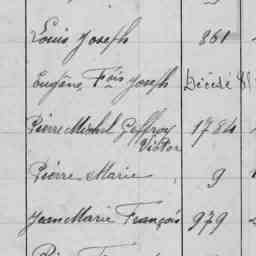 Louis Joseph 861
Eugène Fois Joseph Décédé
Pierre Michel Geffroy 1784
Victor
Pierre Marie 9
Jean Marie François 979